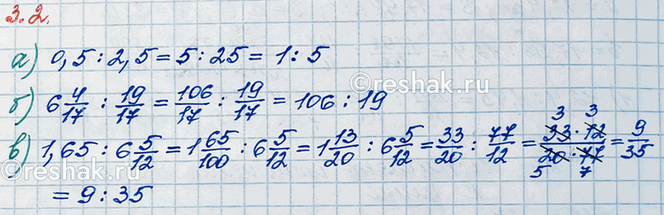 3.2.
а) 0,5 : 2,5 = 5 : 25 = 1 : 5
б) 6 4/17 : 19/17 = 106/17 : 19/17 = 106 : 19
в) 1,65 : 6 5/12 = 1 65/100 : 6 5/12 = 1 13/20 : 6 5/12 = 33/20 : 77/12 = 33 · 12/20 · 77 = 9/35
3 3
5 7
= 9 : 35
©reshak.ru